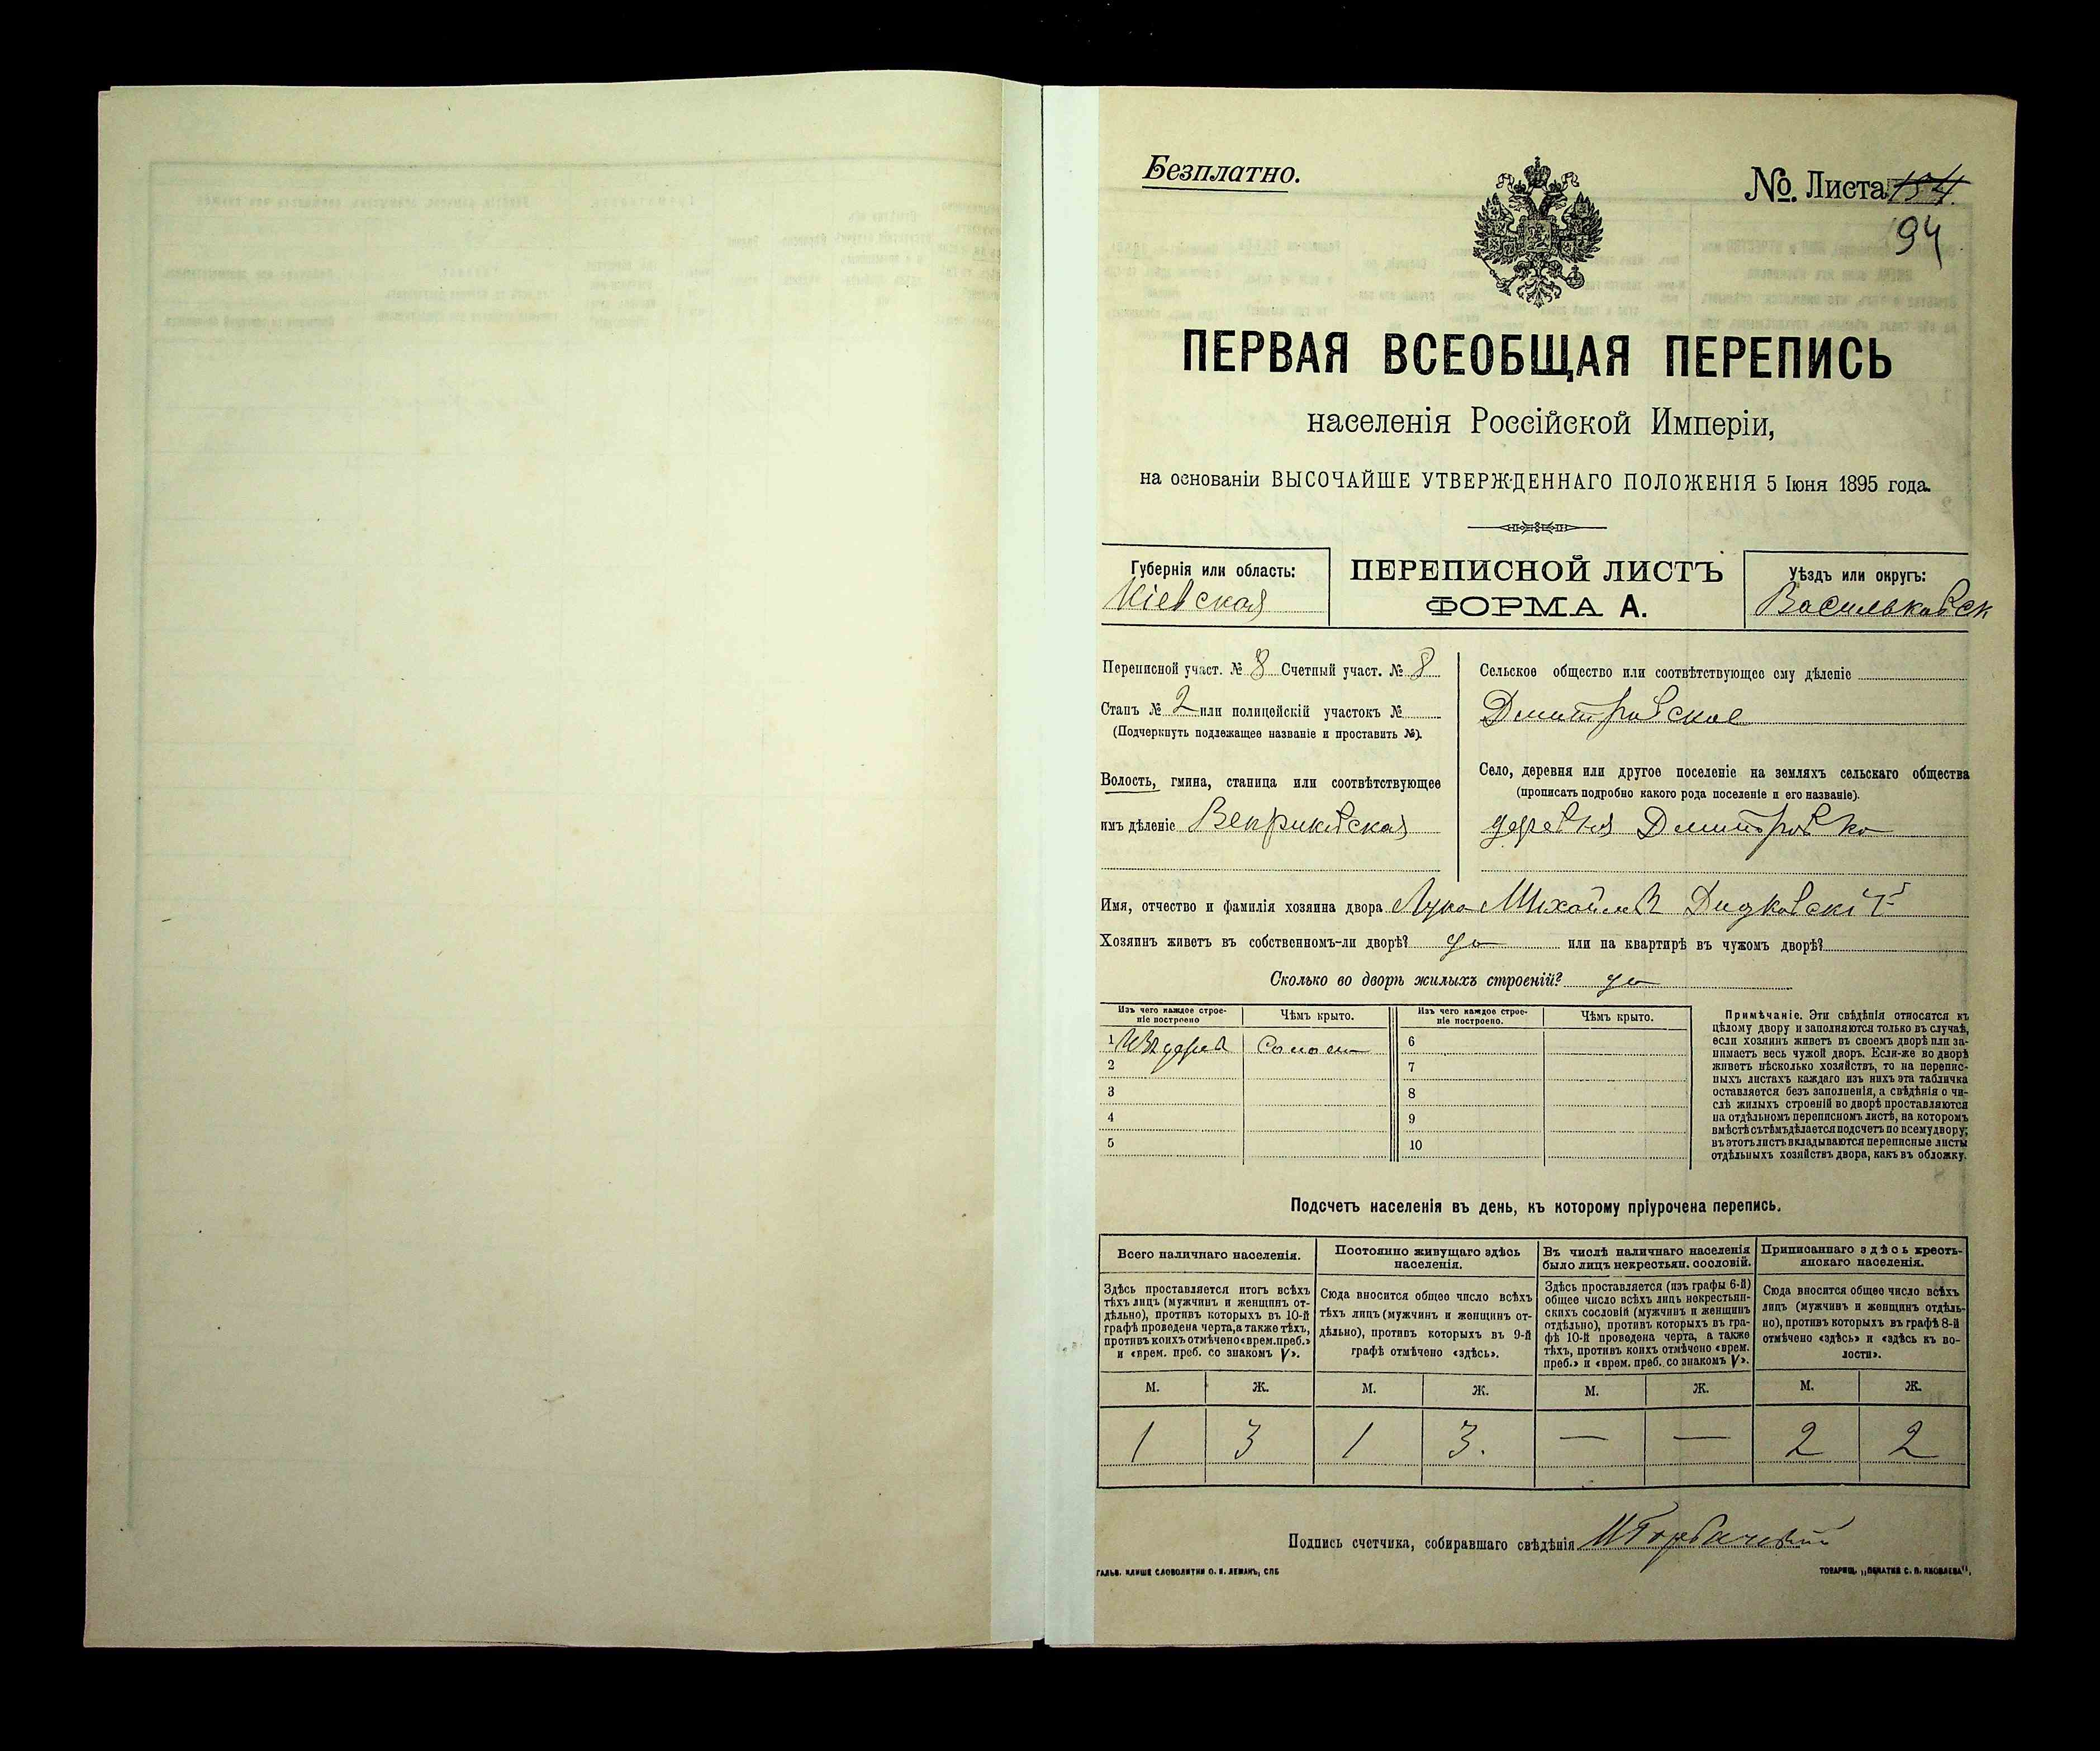 Безплатно.
№. Листа 154.
94
ПЕРВАЯ ВСЕОБЩАЯ ПЕРЕПИСЬ
населенія Россійской Имперіи,
на основаніи ВЫСОЧАЙШЕ УТВЕРЖДЕННАГО ПОЛОЖЕНІЯ 5 Іюня 1895 года.
Губернія или область:
Кіевская
ПЕРЕПИСНОЙ ЛИСТЪ
ФОРМА А.
Уѣздъ или округъ:
Васильковск
Переписной участ. № 8 Счетный участ. № 8
Станъ № 2 или полицейскій участокъ №
(Подчеркнуть подлежащее названіе и проставить №).
Волость, гмина, станица или соотвѣтствующее
имъ дѣленіе Веприкивская
Сельское общество или соотвѣтствующее ему дѣленіе
Дмитровское
Село, деревня или другое поселеніе на земляхъ сельскаго общества
(прописать подробно какого рода поселеніе и его названіе).
деревня Дмитровка
Имя, отчество и фамилія хозяина двора Лука Михайловъ Дидковскій
Хозяинъ живетъ въ собственномъ-ли дворѣ? да или на квартирѣ въ чужомъ дворѣ?
Сколько во дворѣ жилыхъ строеній? да
Изъ чего каждое строе-
ніе построено
Чѣмъ крыто.
Изъ чего каждое строе-
ніе построено.
Чѣмъ крыто.
1 Изъ дерев Солом 6
2 7
3 8
4 9
5 10
Примѣчаніе. Эти свѣдѣнія относятся къ
цѣлому двору и заполняются только въ случаѣ,
если хозяинъ живетъ въ своемъ дворѣ или за-
нимаетъ весь чужой дворъ. Если-же во дворѣ
живетъ нѣсколько хозяйствъ, то на перепис-
ныхъ листахъ каждаго изъ нихъ эта табличка
оставляется безъ заполненія, а свѣдѣнія о чи-
слѣ жилыхъ строеній во дворѣ проставляются
на отдѣльномъ переписномъ листѣ, на которомъ
вмѣстѣ съ тѣмъ дѣлается подсчетъ по всему двору;
въ этотъ листъ вкладываются переписные листы
отдѣльныхъ хозяйствъ двора, какъ въ обложку.
Подсчетъ населенія въ день, къ которому пріурочена перепись.
Всего наличнаго населенія.
Здѣсь проставляется итогъ всѣхъ
тѣхъ лицъ (мужчинъ и женщинъ от-
дѣльно), противъ которыхъ въ 10-й
графѣ проведена черта, а также тѣхъ,
противъ коихъ отмѣчено «врем. преб.»
и «врем. преб. со знакомъ V».
Постоянно живущаго здѣсь
населенія.
Сюда вносится общее число всѣхъ
тѣхъ лицъ (мужчинъ и женщинъ от-
дѣльно), противъ которыхъ въ 9-й
графѣ отмѣчено «здѣсь».
Въ числѣ наличнаго населенія
было лицъ некрестьян. сословій.
Здѣсь проставляется (изъ графы 6-й)
общее число всѣхъ лицъ некрестьян-
скихъ сословій (мужчинъ и женщинъ
отдѣльно), противъ которыхъ въ гра-
фѣ 10-й проведена черта, а также
тѣхъ, противъ коихъ отмѣчено «врем.
преб.» и «врем. преб. со знакомъ V».
Приписаннаго здѣсь кресть-
янскаго населенія.
Сюда вносится общее число всѣхъ
лицъ (мужчинъ и женщинъ отдѣль-
но), противъ которыхъ въ графѣ 8-й
отмѣчено «здѣсь» и «здѣсь къ во-
лости».
М. Ж. М. Ж. М. Ж. М. Ж.
1 3 1 3. — — 2 2
Подпись счетчика, собиравшаго свѣдѣнія
ГАЛЬВ. КЛИШЕ СЛОВОЛИТНИ О. И. ЛЕМАНЪ, СПБ
ТОВАРИЩ. „ПЕЧАТНЯ С. П. ЯКОВЛЕВА“.